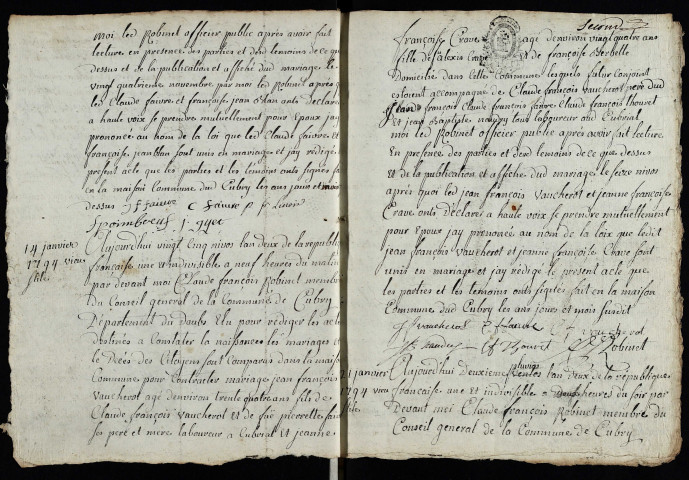 moi led Robinet officier public après avoir fait
lecture en presence des parties et desd temoins de ce que
dessus et de la publication et affiche dud mariage le
vingt quatrieme novembre par moi led Robinet après q
les Claude faivre et françoise jean d'han onts declare
a haute voix se prendre mutuellement pour Epoux jay
prononcé au nom de la loi que led Claude faivre et
françoise jeand'han sont unis en mariage et jay rédigé
present acte que les parties et les temoins onts signés fait
en la maison Commune dud Cubry les ans jours et mois
dessus jf faivre C faivre p fr
14 janvier
1794 vieux
stile
Aujourdhui vingt Cinq nivos lan deux de la republi
française une et indivisible a neuf heures du matin
par devant moi Claude françois Robinet membre
du Conseil general de la Commune de Cubry
Département du Doubs Elu pour rédiger les acte
destinés a Constater la naissances les mariages et
le Décès des Citoyens sont Comparus dans la maison
Commune pour Contracter mariage jean françois
Vaucherot agé denviron trente quatre ans fils de
Claude françois Vaucherot et de fue pierrette
ses pere et mere laboureur a Cubrial et jeanne
Second
françoise Crave agé denviron vingt quatre ans
fille de alexis Crave et de françoise
Domicilié dans Cette Commune lesquels futur Conjoint
estoient accompagné de Claude françois Vaucherot pere dud
jean françois Claude françois faivre Claude françois thouret
et jean Baptiste tous laboureur aud Cubrial
moi led Robinet officier public après avoir fait lecture
En presence des parties et desd temoins de ce que dessus
et de la publication et affiche du mariage le seize nivos
après quoi led jean françois Vaucherot et jeanne françoise
Crave onts déclaré a haute voix se prendre mutuellement
pour Epoux jay prononcé au nom de la loix que ledit
jean françois Vaucherot et jeanne françoise Crave sont
unis en mariage et jay rédigé le present acte que
les parties et les temoins onts signés fait en la maison
Commune dud Cubry les ans jours et mois susdit
jf vaucherot C f faivre vaucherot
C f thouret Robinet
21 janvier
1794 vieux
stile
Aujourdhui deuxieme pluvios lan deux de la republique
française une et indivisible a heures du soir par
Devant moi Claude françois Robinet membre du
Conseil general de la Commune de Cubry